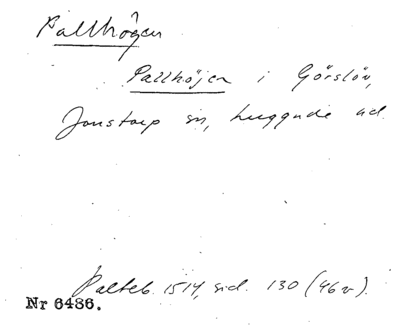 Pallhögen
Pallhöjen i Görslöv,
Jonstorp sn, Luggude hd.
Palteb. 1514, sid. 130 (46v).
Nr 6486.